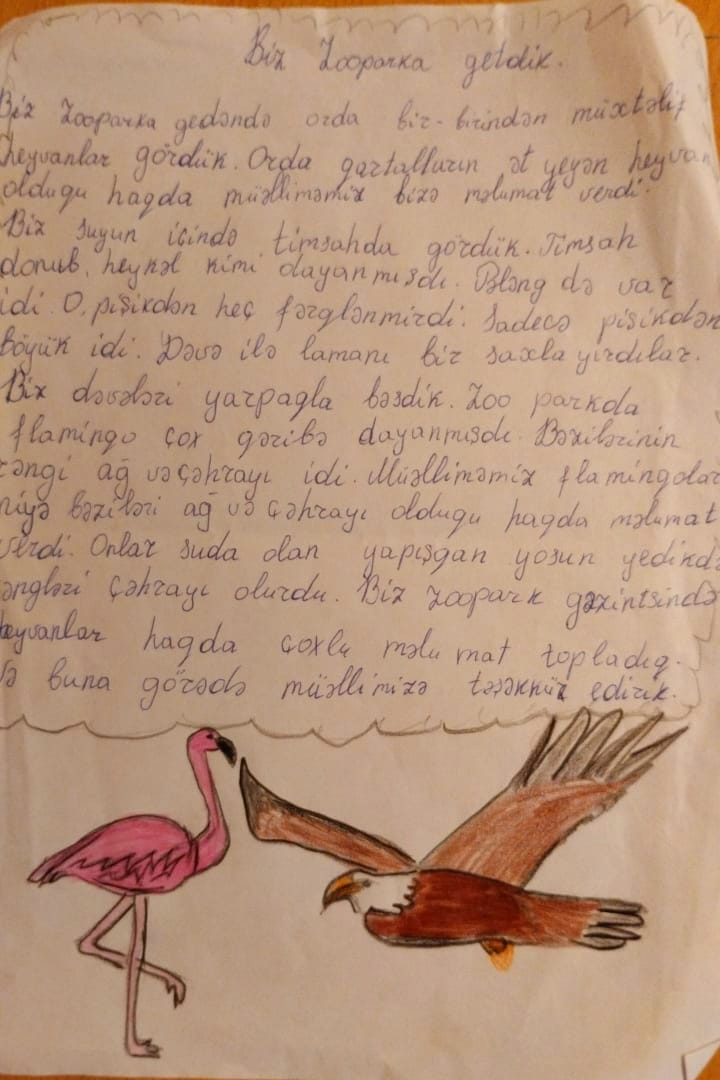 Biz Zooparka getdik.
Biz Zooparka gedəndə orda bir-birindən müxtəlif
heyvanlar gördük. Orda qartalların ət yeyən heyvan
olduğu haqda müəlliməmiz bizə məlumat verdi.
Biz suyun içində timsahda gördük. Timsah
donub, heykəl kimi dayanmışdı. Pələng də var
idi. O, pişikdən heç fərqlənmirdi. Sadəcə pişikdən
böyük idi. Dəvə ilə lamanı bir saxlayırdılar.
Biz dəvələri yarpagla bəsdik. Zoo parkda
flamingo çox qəribə dayanmışdı. Bəzilərinin
rəngi ağ və çəhrayı idi. Müəlliməmiz flamingolar
niyə bəziləri ağ və çəhrayı oldugu haqda məlumat
verdi. Onlar suda olan yapışgan yosun yedikdə
rəngləri çəhrayı olurdu. Biz zoopark gəzintsində
heyvanlar haqda çoxlu məlumat topladıq.
Və buna görədə müəllimizə təşəkkür edirik.